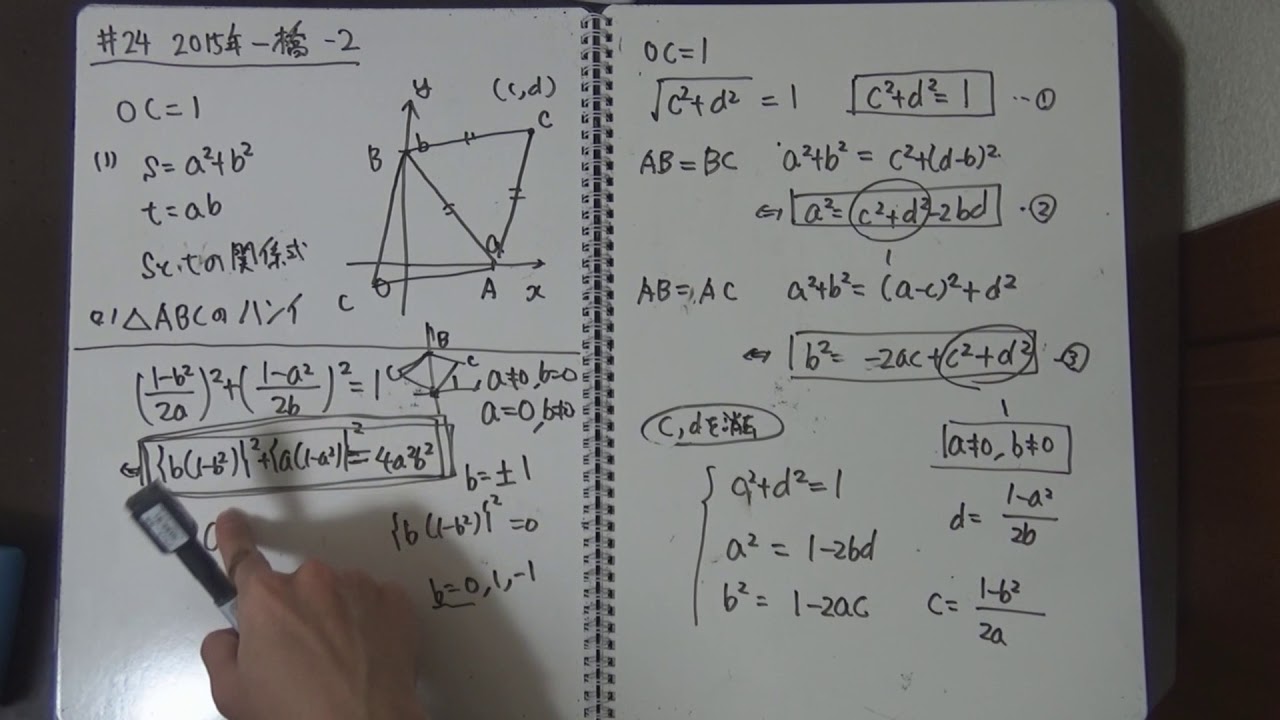 #24 2015年一橋 -2
OC=1
(1) S=a²+b²
t=ab
Sとtの関係式
(2) △ABCのハンイ
y
(c,d)
C
B b
a
C O A x
(1-b²/2a)²+(1-a²/2b)²=1
B
C C
a≠0,b=0
a=0,b≠0
⇔ {b(1-b²)}²+{a(1-a²)}²=4a²b²
b=±1
{b(1-b²)}²=0
b=0,1,-1
OC=1
√c²+d² =1 c²+d²=1 …①
AB=BC a²+b²=c²+(d-b)²
⇔ a²=c²+d²-2bd ・②
1
AB=AC a²+b²=(a-c)²+d²
⇔ b²= -2ac+c²+d² ③
1
c,dを消去
a≠0, b≠0
c²+d²=1
a²=1-2bd
b²=1-2ac
d=1-a²/2b
c=1-b²/2a